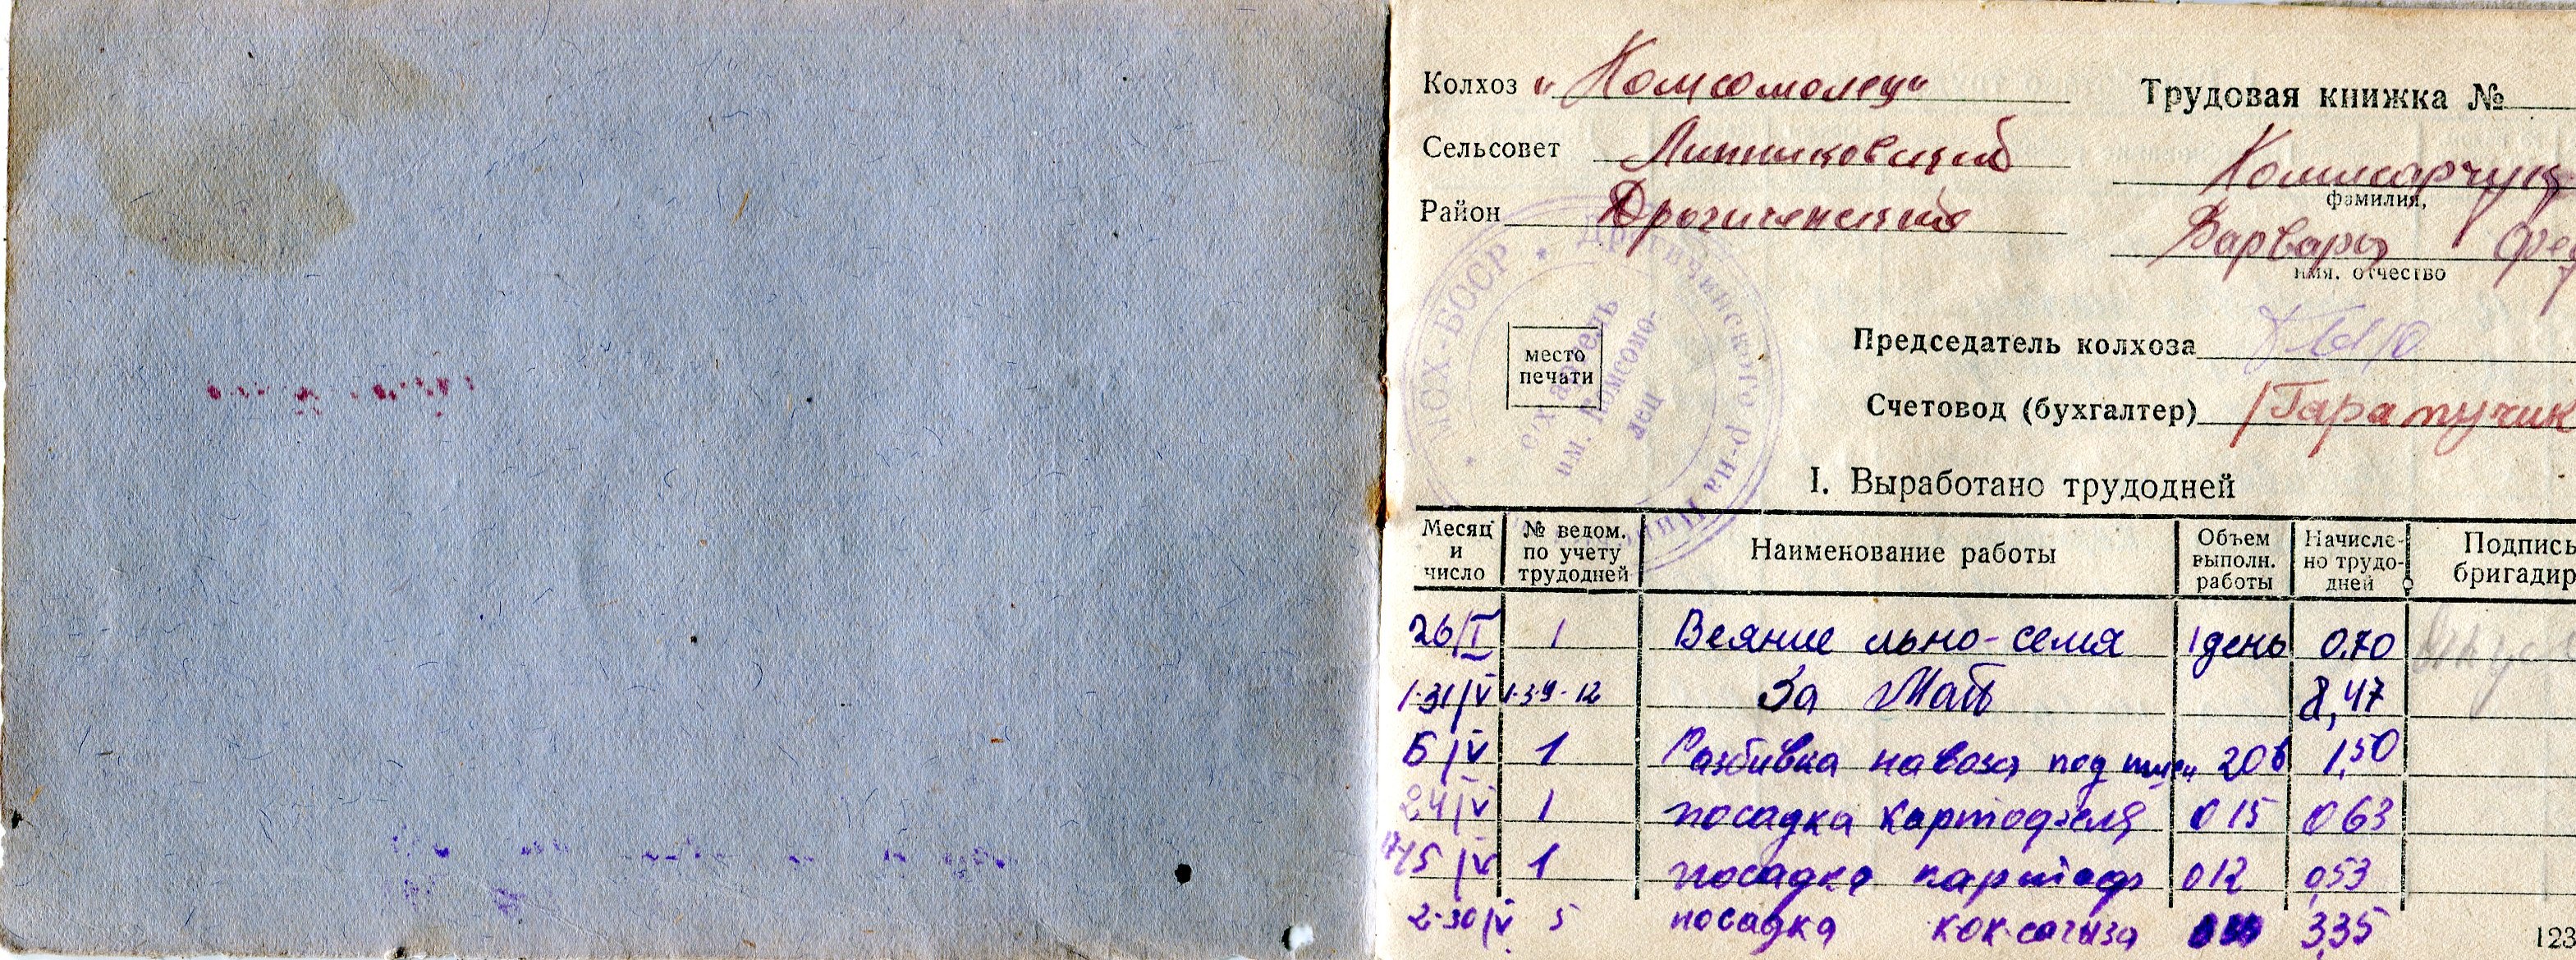 Колхоз "Комсомолец"
Трудовая книжка №
Сельсовет
Комиссарчук
фамилия,
Район Дрогиченский
Варвара
имя, отчество
МСХ-БССР * Дрогиченского р-на
с.х. артель
им. Комсомо-
лец
место
печати
Председатель колхоза
Счетовод (бухгалтер)
I. Выработано трудодней
Месяц и число
№ ведом. по учету трудодней
Наименование работы
Объем выполн. работы
Начисле- но трудо- дней
Подпись бригадир
26/I 1 Веяние льно-семя 1 день 0.70
1-31/V За Май 8,47
5/V 1 Разбивка навоза под 20 1,50
24/V 1 посадка картофеля 015 063
15/V 1 посадка картоф 012 0,53
2-30/V 5 посадка кок-сагыза 3,35
123